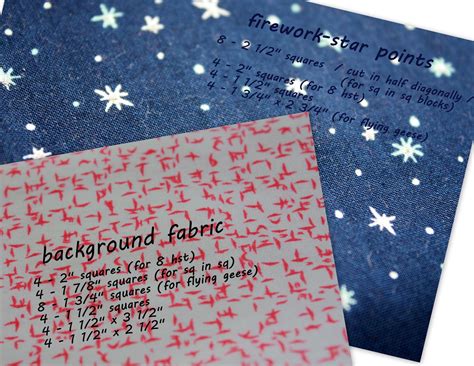 firework-star points
8 - 2 1/2" squares / cut in half diagonally /
4 - 2" squares (for 8 hst)
4 - 1 1/2" squares (for sq in sq blocks)
4 - 1 3/4" x 2 3/4" (for flying geese)
background fabric
4 - 2" squares (for 8 hst)
4 - 1 7/8" squares (for sq in sq)
8 - 1 3/4" squares (for flying geese)
4 - 1 1/2" squares
4 - 1 1/2" x 3 1/2"
4 - 1 1/2" x 2 1/2"